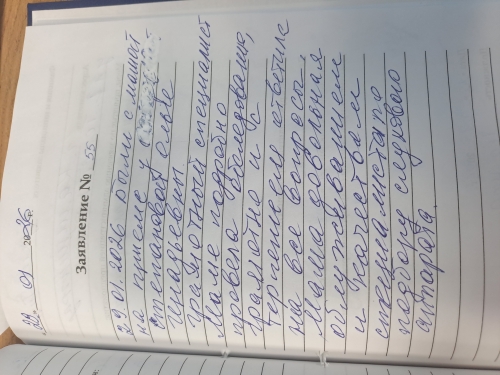 29 01 2026
Заявление № 55
29 01. 2026 были с мамой
на приеме у
Степановой Ольги
Генадьевны
Грамотный специалист
Маме подробно
провела обследование,
грамотно и с
терпением ответила
на все вопросы.
Мама довольная
обслуживанием
и качеством
специалиста по
подбору слухового
аппарата.